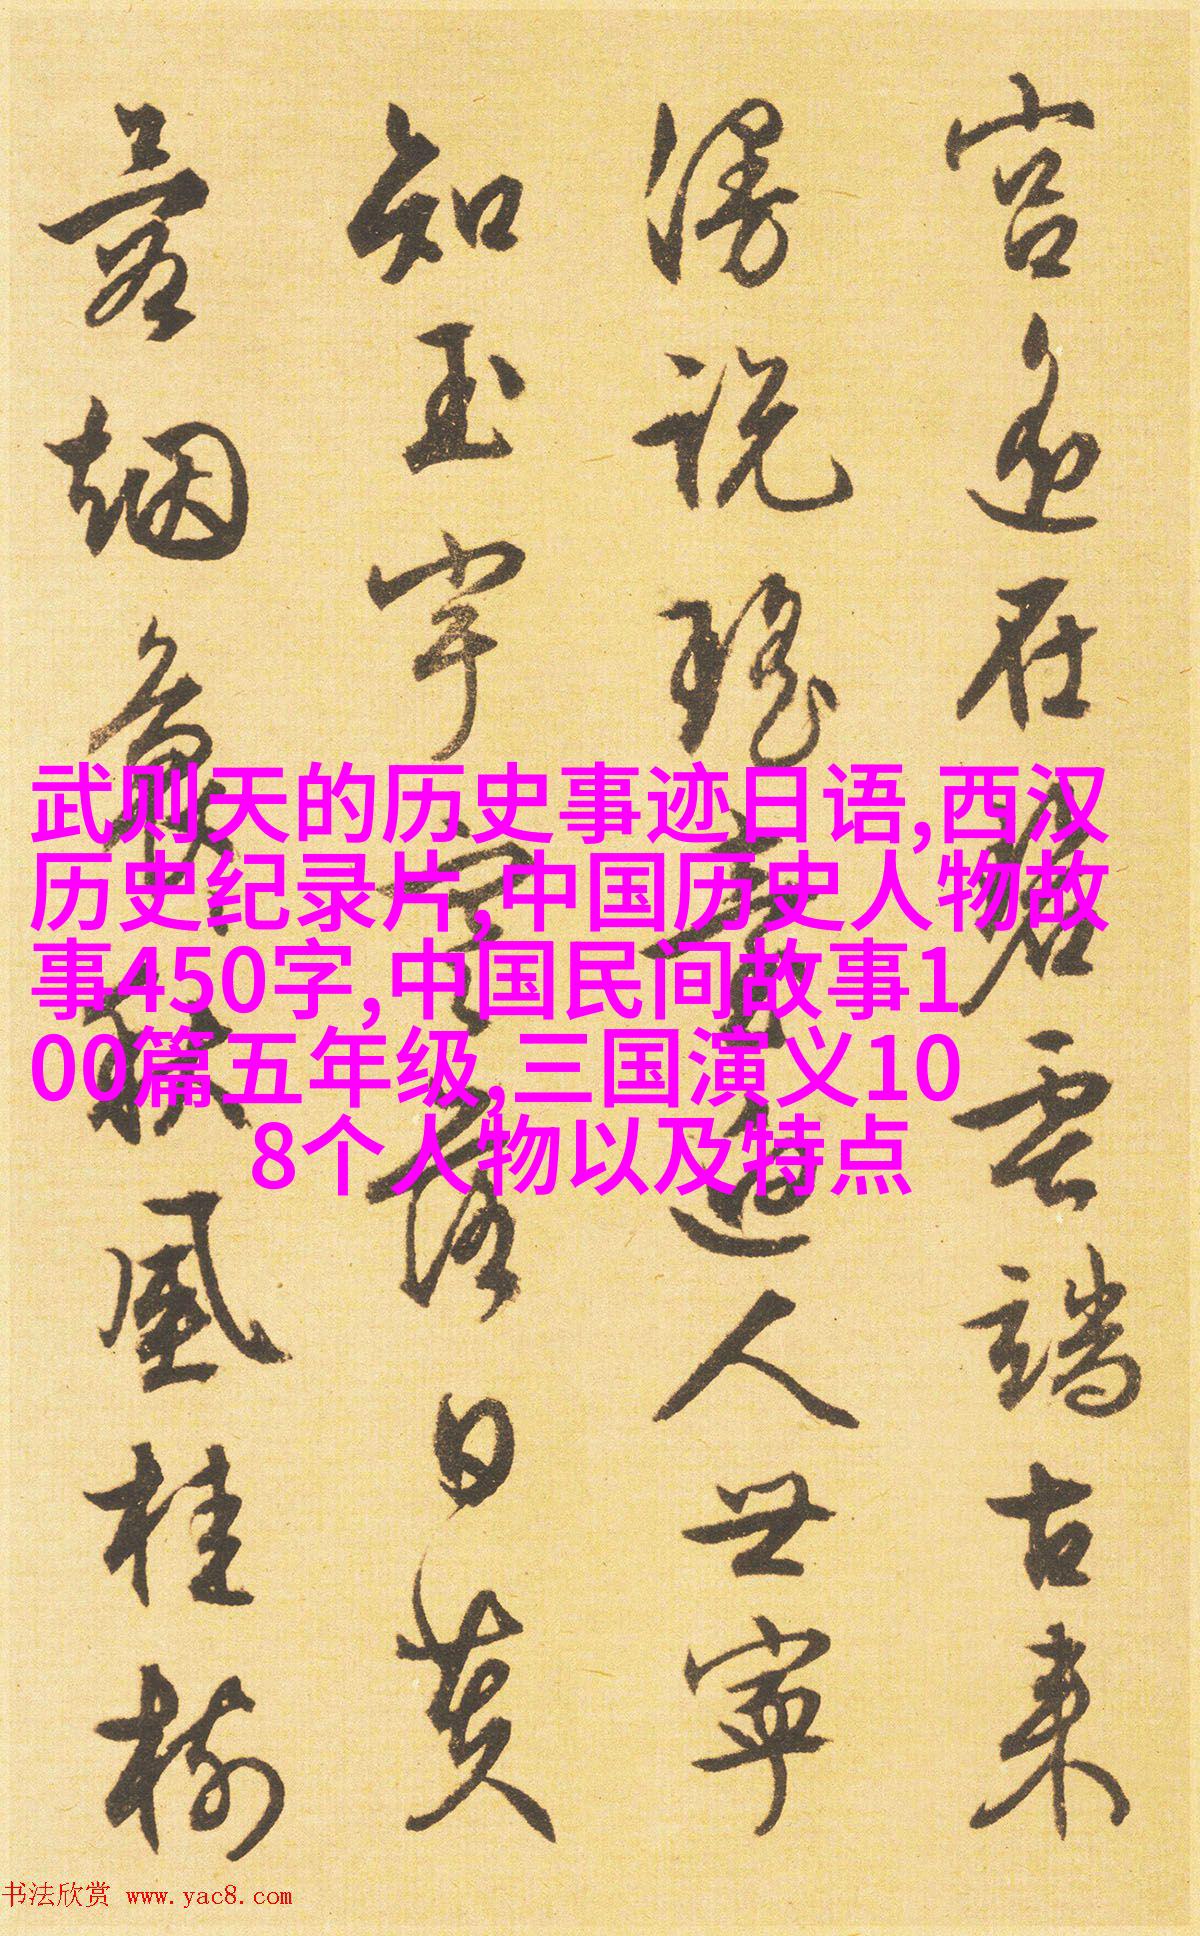 宫在碧雲端古来
漫說瑶臺人世寧
知玉宇寒落日黄
烟秋風桂樹
武则天的历史事迹日语,西汉
历史纪录片,中国历史人物故
事450字,中国民间故事1
00篇五年级,三国演义10
8个人物以及特点
书法欣赏 www.yac8.com